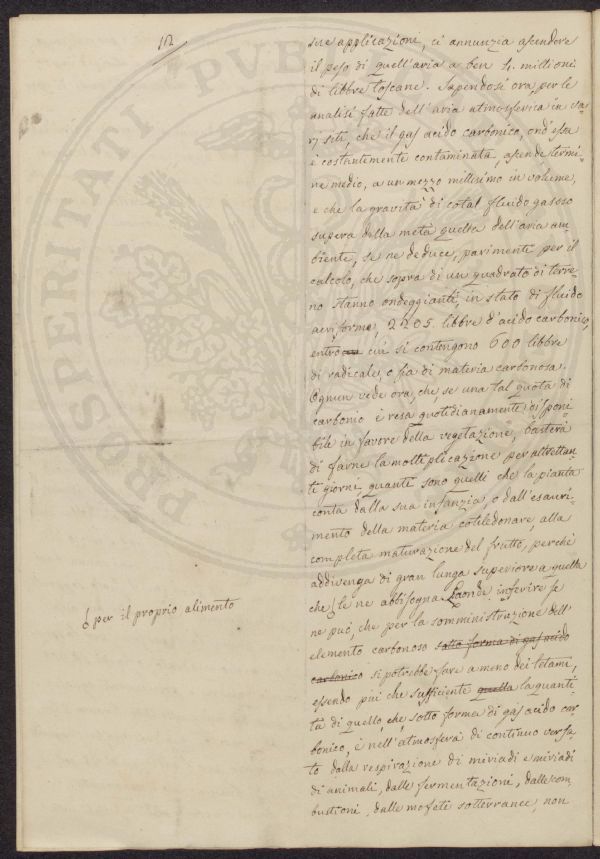 112
sue applicazione, ci annunzia ascendere
il peso di quell'aria a ben 4. millioni
di libbre toscane. Sapendosi ora, per le
analisi fatte dell'aria atmosferica in va-
rj siti, che il gas acido carbonico, ond'essa
è costantemente contaminata, ascende termi-
ne medio, a un mezzo millisimo in volume,
e che la gravità di cotal fluido gassoso
supera della metà quella dell'aria am-
biente, se ne deduce, parimenti per il
calcolo, che sopra di un quadrato di terre-
no stanno ondeggianti, in stato di fluido
aeriforme, 2205. libbre d'acido carbonico,
entro cui si contengono 600 libbre
di radicale, o sia di materia carbonosa.
Ognun vede ora, che, se una tal quota di
carbonio è resa quotidianamente disponi-
bile in favore della vegetazione, basterà
di farne la moltiplicazione per altrettan-
ti giorni, quanti sono quelli che la pianta
conta dalla sua infanzia, o dall'esauri-
mento della materia cotiledonare, alla
completa maturazione del frutto, perchè
addivenga di gran lunga superiore a quella
che le ne abbisogna. Laonde inferire se
ne può, che per la somministrazione dell'
elemento carbonoso sotto forma di gas acido
carbonico si potrebbe fare a meno dei letami,
essendo più che sufficiente quella la quanti-
tà di quello, che, sotto forma di gas acido car-
bonico, è nell'atmosfera di continuo versa-
to dalla respirazione di miriadi e miriadi
di animali, dalle fermentazioni, dalle com-
bustioni, dalle mofete sotterranee, non
per il proprio alimento
PROSPERITATI PUBLICAE